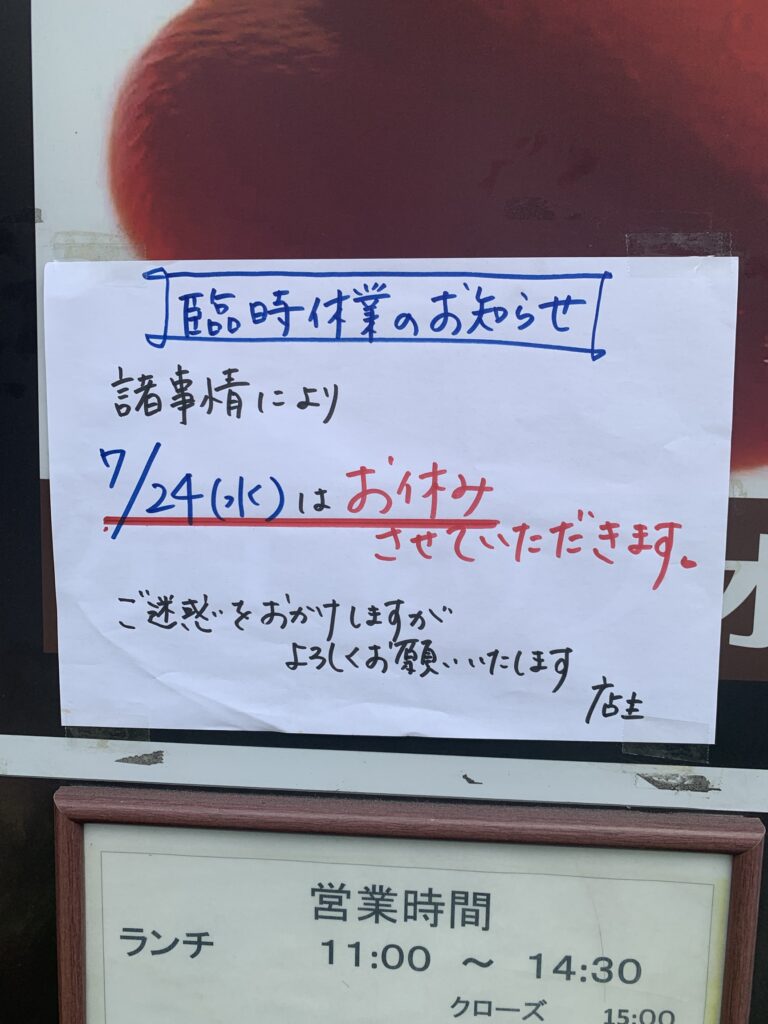 臨時休業のお知らせ
諸事情により
7/24(水)はお休み
させていただきます。
ご迷惑をおかけしますが
よろしくお願いいたします
店主
営業時間
ランチ 11:00 ～ 14:30
クローズ 15:00